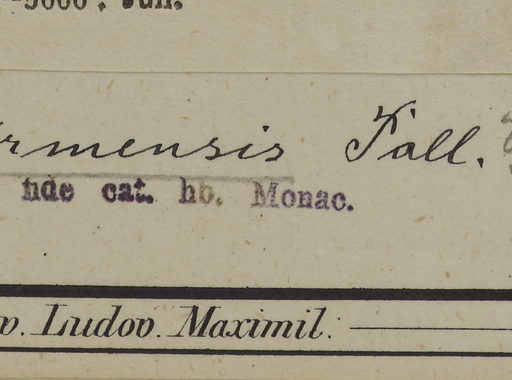 -5000. Jun.
rmensis Fall.
fide cat. hb. Monac.
v. Ludov. Maximil: